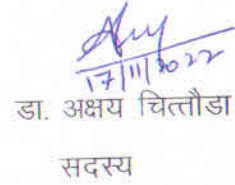 17/11/2022
डा. अक्षय चित्तौडा
सदस्य